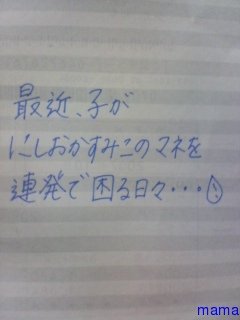 最近、子が
にしおかすみこのマネを
連発で困る日々・・・
mama